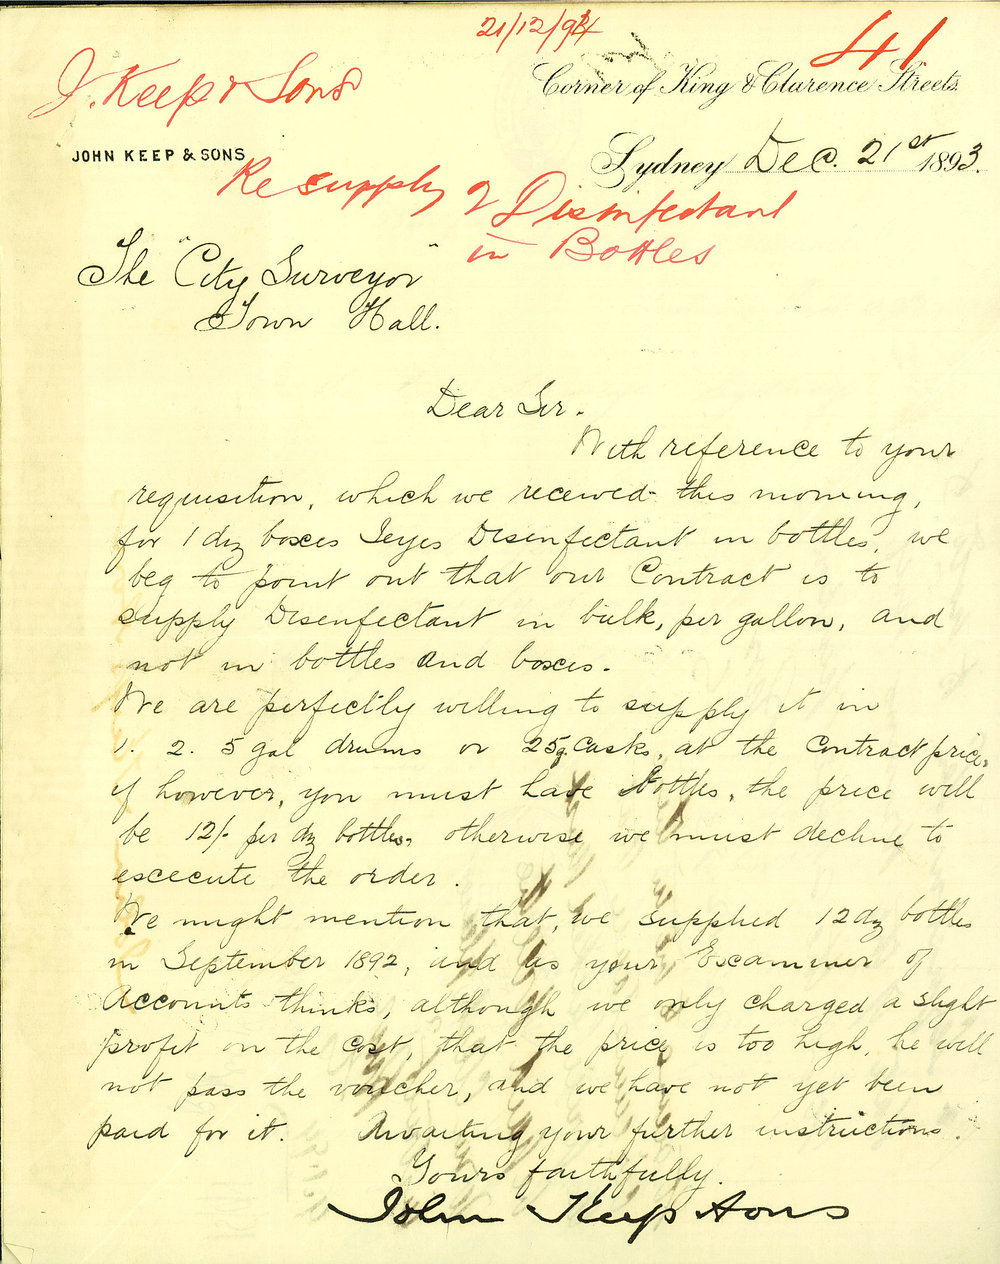 21/12/93
41
J. Keep & Sons
Corner of King & Clarence Streets.
JOHN KEEP & SONS
Sydney Dec. 21st 1893.
Re supply of Disinfectant
in Bottles
The "City Surveyor"
Town Hall.
Dear Sir.
With reference to your
requisition, which we received this morning,
for 1 dz boxes Jeyes Disenfectant in bottles, we
beg to point out that our Contract is to
supply Disenfectant in bulk, per gallon, and
not in bottles and boxes.
We are perfectly willing to supply it in
1. 2. 5 gal drums or 25g Casks, at the Contract price,
if however, you must have bottles, the price will
be 12/- per dz bottles, otherwise we must decline to
excecute the order.
We might mention that, we supplied 12 dz bottles
in September 1892, and as your Examiner of
Accounts thinks, although we only charged a slight
profit on the cost, that the price is too high, he will
not pass the voucher, and we have not yet been
paid for it. Awaiting your further instructions.
Yours faithfully.
John Keep & Sons